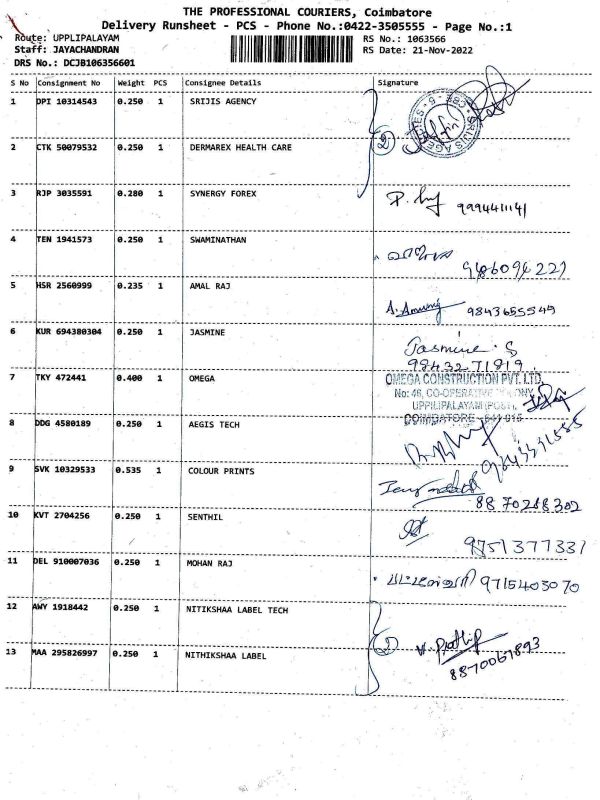 THE PROFESSIONAL COURIERS, Coimbatore
Delivery Runsheet - PCS - Phone No.:0422-3505555 - Page No.:1
Route: UPPLIPALAYAM
Staff: JAYACHANDRAN
DRS No.: DCJB106356601
RS No.: 1063566
RS Date: 21-Nov-2022
S No Consignment No Weight PCS Consignee Details Signature
1 DPI 10314543 0.250 1 SRIJIS AGENCY
2 CTK 50079532 0.250 1 DERMAREX HEALTH CARE
3 RJP 3035591 0.280 1 SYNERGY FOREX 9994411141
4 TEN 1941573 0.250 1 SWAMINATHAN
5 HSR 2560999 0.235 1 AMAL RAJ 9843655549
6 KUR 694380304 0.250 1 JASMINE Jasmine . S
98432 71819
7 TKY 472441 0.400 1 OMEGA OMEGA CONSTRUCTION PVT. LTD.
No: 46, CO-OPERATIVE
UPPILIPALAYAM (POST),
COIMBATORE - 641 015
8 DDG 4580189 0.250 1 AEGIS TECH
9 SVK 10329533 0.535 1 COLOUR PRINTS
8870218302
10 KVT 2704256 0.250 1 SENTHIL 9751377331
11 DEL 910007036 0.250 1 MOHAN RAJ 9715403070
12 AWY 1918442 0.250 1 NITIKSHAA LABEL TECH
13 MAA 295826997 0.250 1 NITHIKSHAA LABEL
8870067893